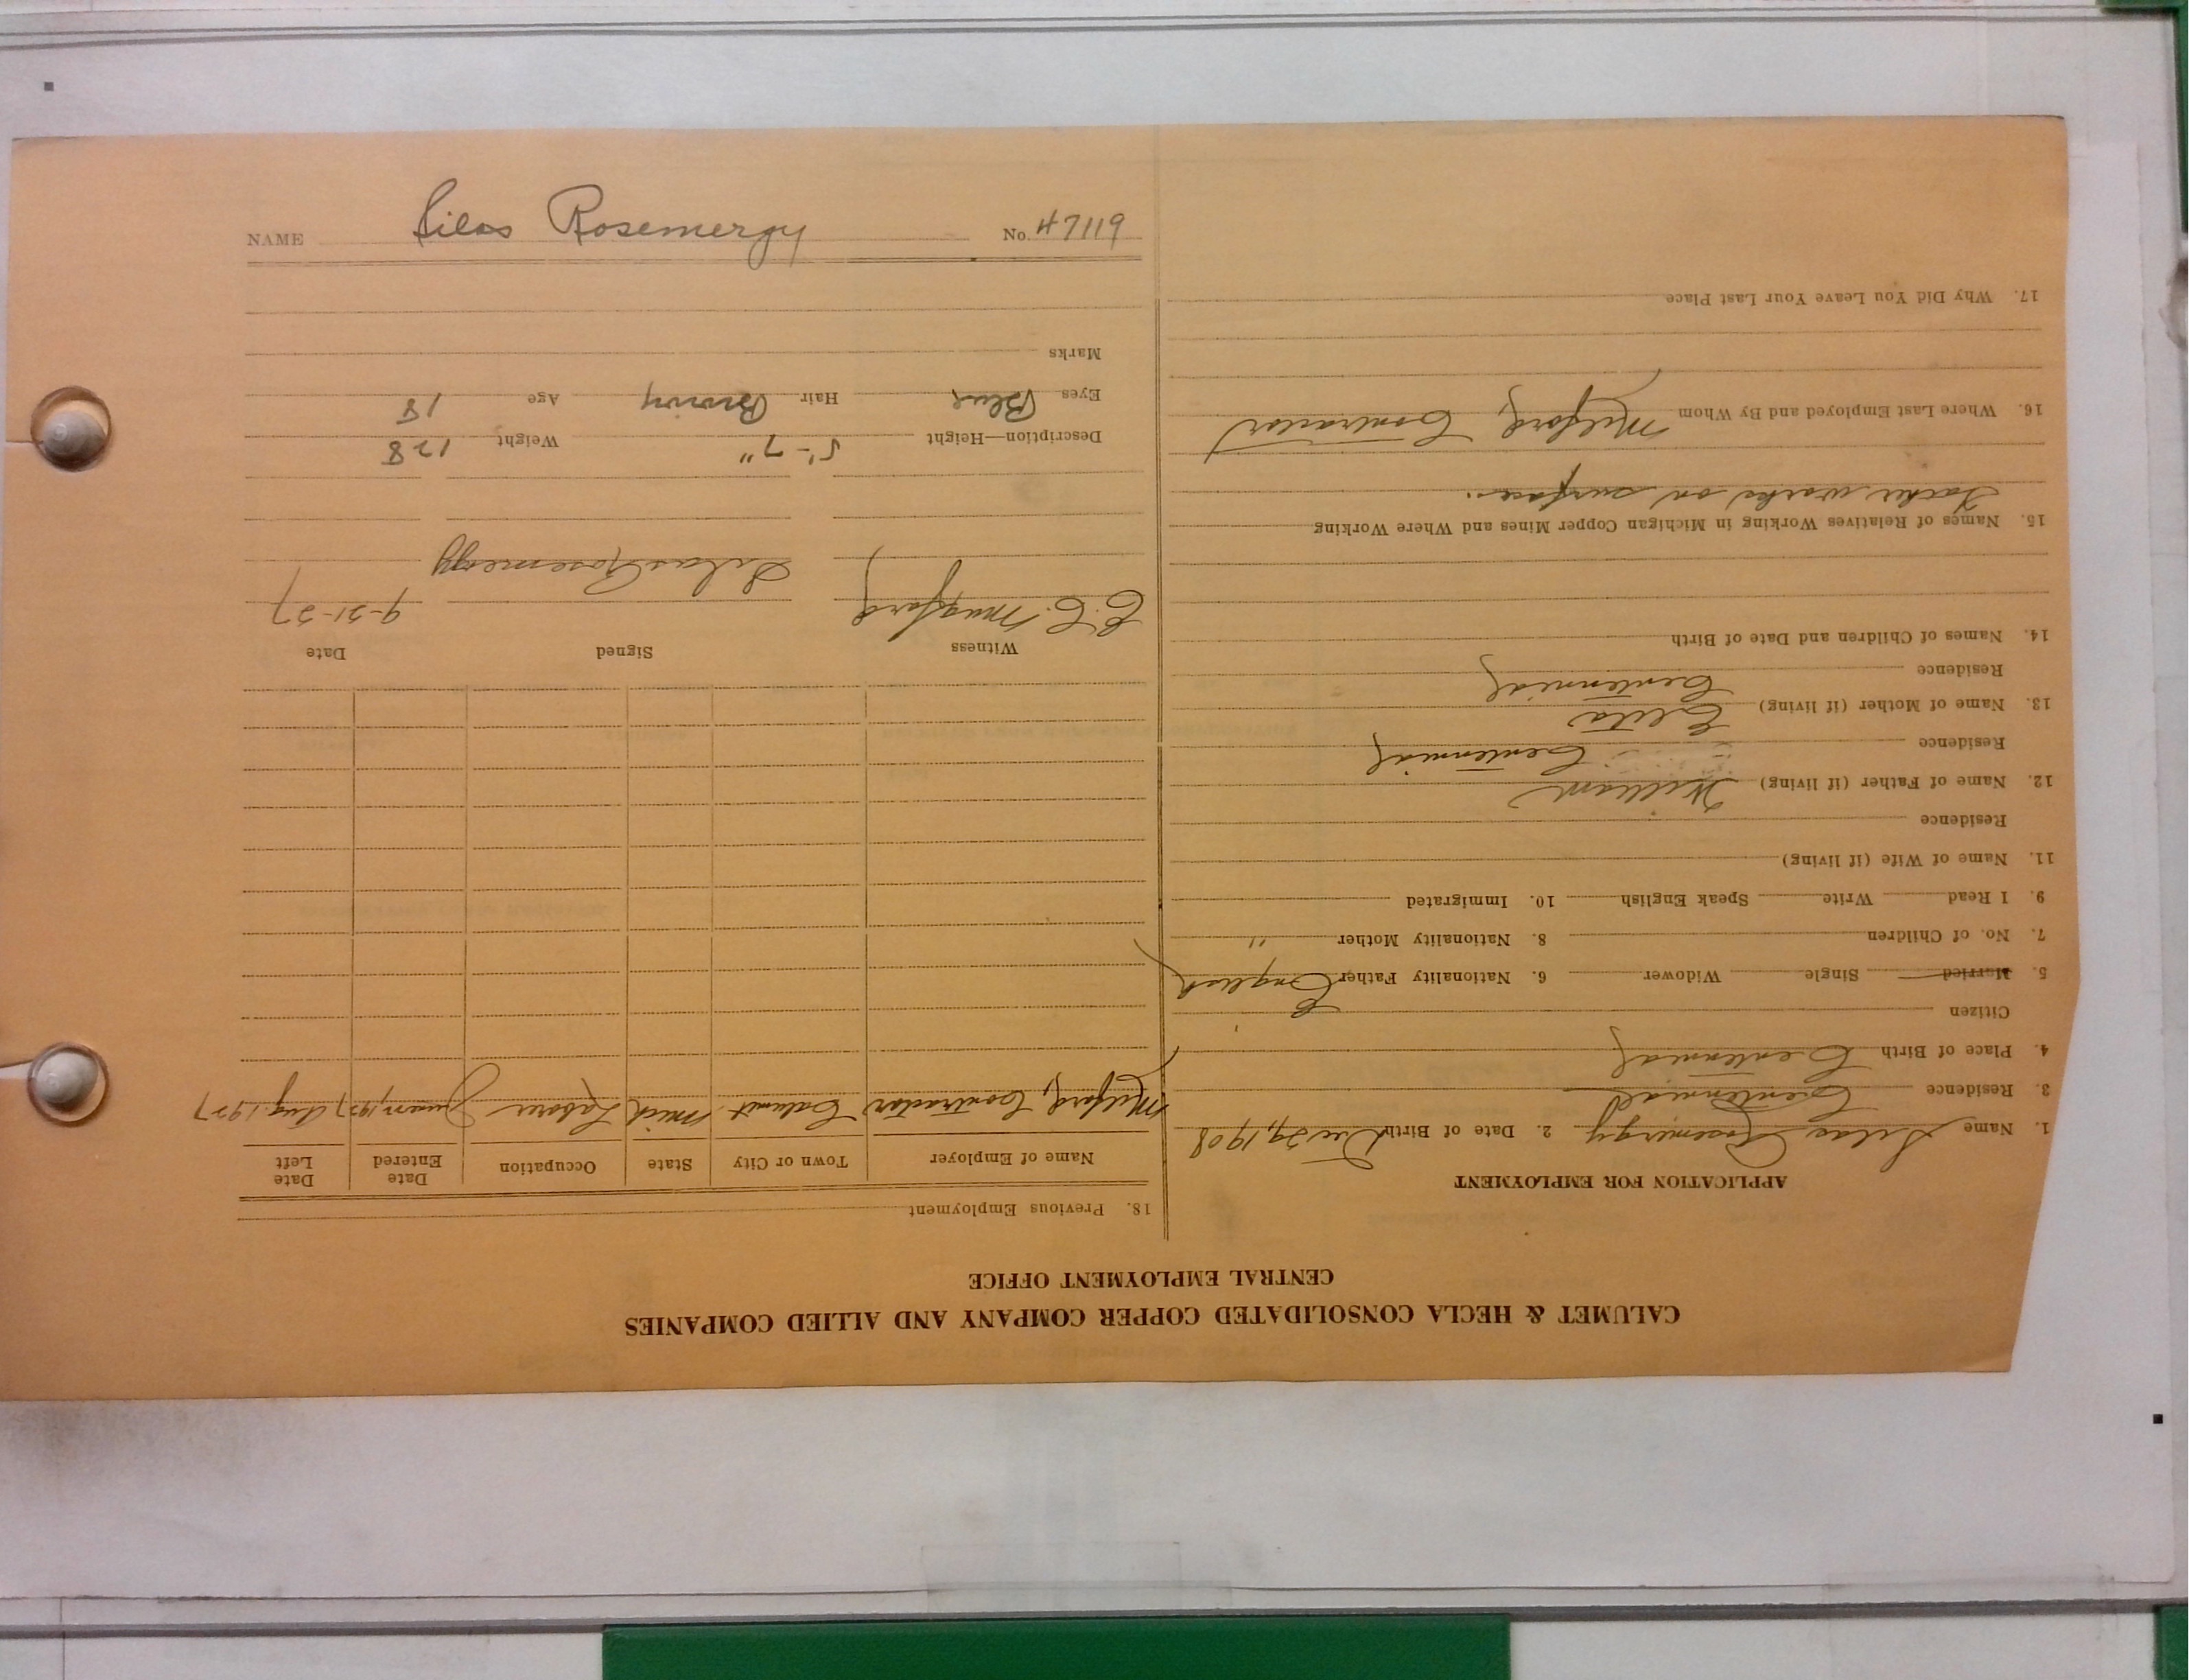 NAME Silas Rosemergy No. 47119
CALUMET & HECLA CONSOLIDATED COPPER COMPANY AND ALLIED COMPANIES
CENTRAL EMPLOYMENT OFFICE
APPLICATION FOR EMPLOYMENT
1. Name Silas Rosemergy 2. Date of Birth Dec 29, 1908
3. Residence Centennial
4. Place of Birth Centennial
Citizen
5. Married Single Widower 6. Nationality Father English
7. No. of Children 8. Nationality Mother "
9. I Read Write Speak English 10. Immigrated
11. Name of Wife (if living)
Residence
12. Name of Father (if living) William
Residence Centennial
13. Name of Mother (if living)
Residence Centennial
14. Names of Children and Date of Birth
15. Names of Relatives Working in Michigan Copper Mines and Where Working
Father works on surface.
16. Where Last Employed and By Whom Milford, Contractor
17. Why Did You Leave Your Last Place
18. Previous Employment
Name of Employer Town or City State Occupation Date Entered Date Left
Milford, Contractor Calumet Mich Laborer June, 1927 Aug, 1927
Witness Signed Date
Silas Rosemergy 9-21-27
Description—Height 5'-7" Weight 128
Eyes Blue Hair Brown Age 18
Marks